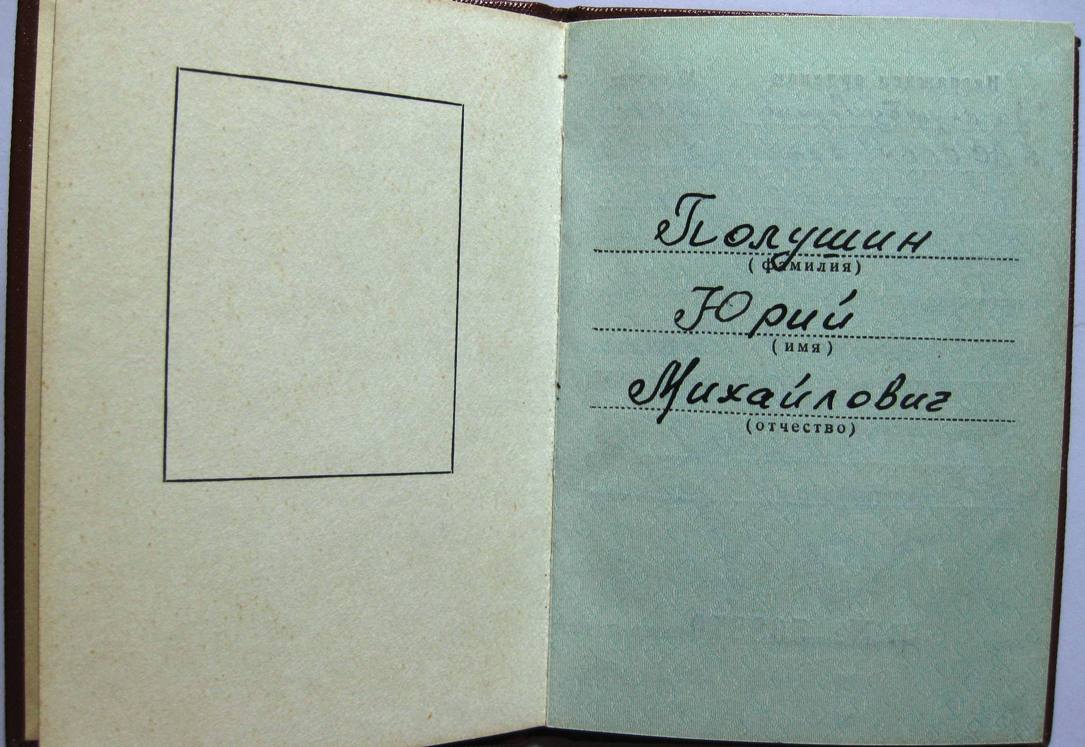 Полушин
(фамилия)
Юрий
(имя)
Михайлович
(отчество)